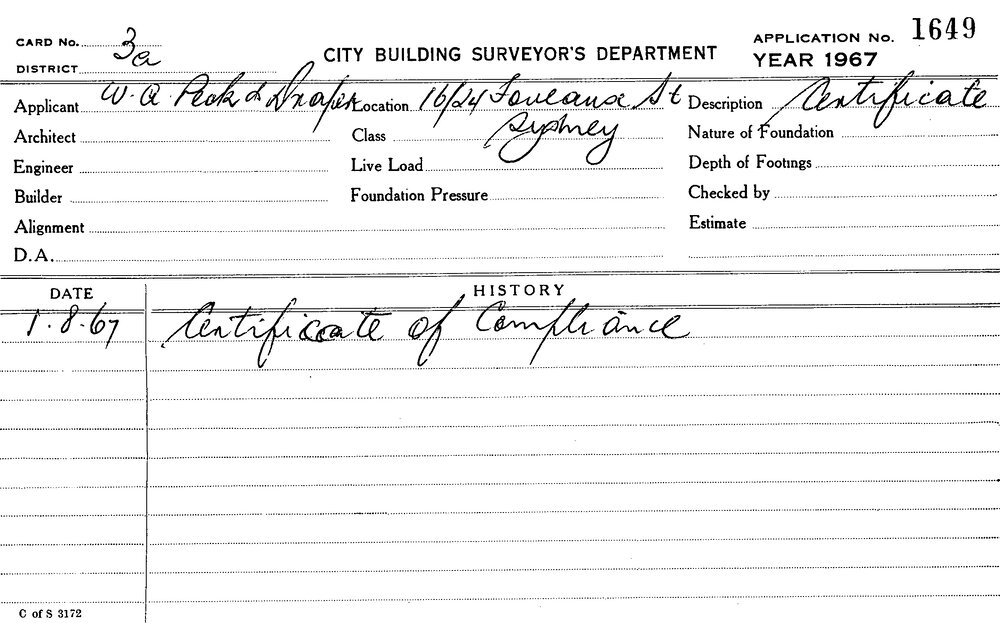 CARD No. 3a
CITY BUILDING SURVEYOR'S DEPARTMENT
APPLICATION No. 1649
DISTRICT
YEAR 1967
Applicant W. A. Peck & Draper Location 16/24 Foveaux St Description Certificate
Sydney
Architect Class Nature of Foundation
Engineer Live Load Depth of Footings
Builder Foundation Pressure Checked by
Alignment Estimate
D.A.
DATE HISTORY
1.8.67 Certificate of Compliance
C of S 3172